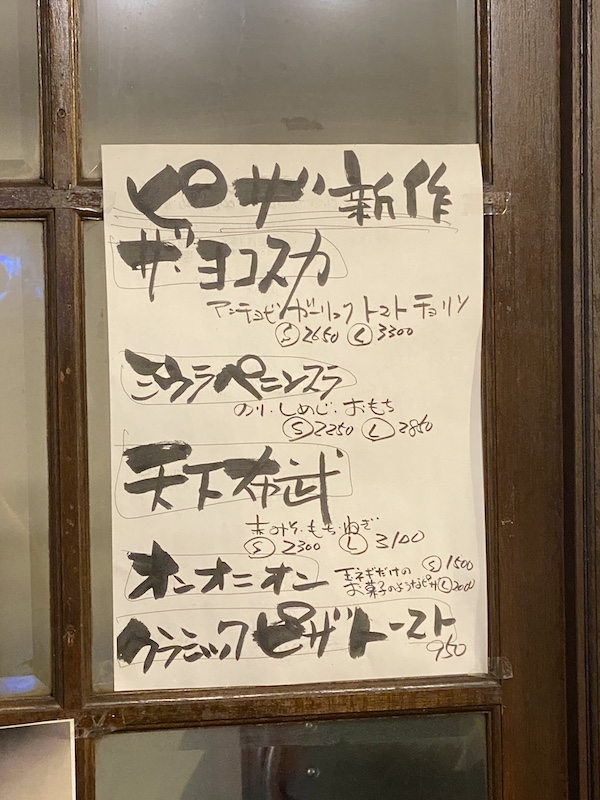 ピザ 新作
ザ・ヨコスカ
アンチョビ ガーリック トマト チョリソ
Ⓢ2650 Ⓛ3300
ミウラペニンスラ
のり・しめじ・おもち
Ⓢ2250 Ⓛ2850
天下布武
赤みそ・もち・ねぎ
Ⓢ2300 Ⓛ3100
オンオニオン
玉ネギだけの Ⓢ1500
お菓子のようなピザ Ⓛ2000
クラシックピザトースト
950